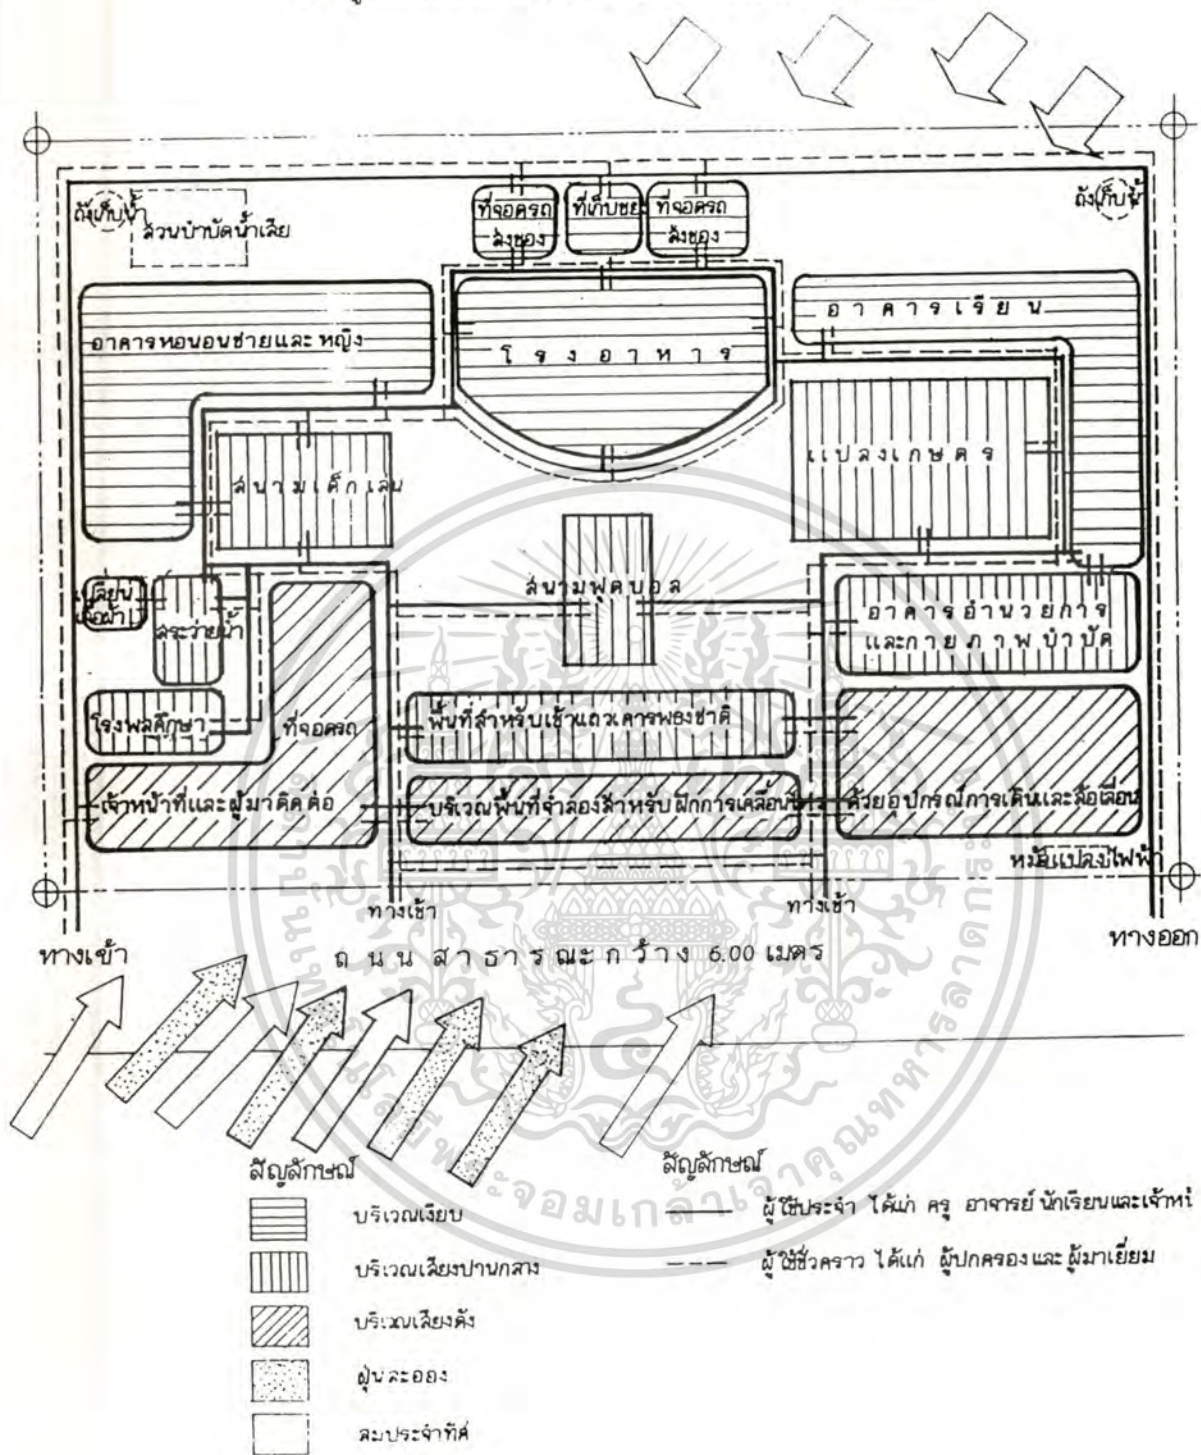 ถังเก็บน้ำ
ส่วนบำบัดน้ำเสีย
ที่จอดรถ
ส่งของ
ที่เก็บขยะ
ที่จอดรถ
ส่งของ
ถังเก็บน้ำ
อาคารหอนอนชายและหญิง
โรงอาหาร
อาคารเรียน
สนามเด็กเล่น
แปลงเกษตร
เปลี่ยน
เสื้อผ้า
สระว่ายน้ำ
สนามฟุตบอล
อาคารอำนวยการ
และกายภาพบำบัด
โรงพลศึกษา
ที่จอดรถ
พื้นที่สำหรับเข้าแถวเคารพธงชาติ
เจ้าหน้าที่และผู้มาติดต่อ
บริเวณพื้นที่จำลองสำหรับฝึกการเคลื่อนไหว
ด้วยอุปกรณ์การเดินและล้อเลื่อน
หม้อแปลงไฟฟ้า
ทางเข้า
ทางเข้า
ทางเข้า
ทางออก
ถนนสาธารณะกว้าง 6.00 เมตร
สัญลักษณ์
บริเวณเงียบ
บริเวณเสียงปานกลาง
บริเวณเสียงดัง
ฝุ่นละออง
ลมประจำทิศ
สัญลักษณ์
ผู้ใช้ประจำ ได้แก่ ครู อาจารย์ นักเรียนและเจ้าหน้
ผู้ใช้ชั่วคราว ได้แก่ ผู้ปกครองและผู้มาเยี่ยม
พระจอมเกล้าเจ้าคุณทหารลาดกระบัง